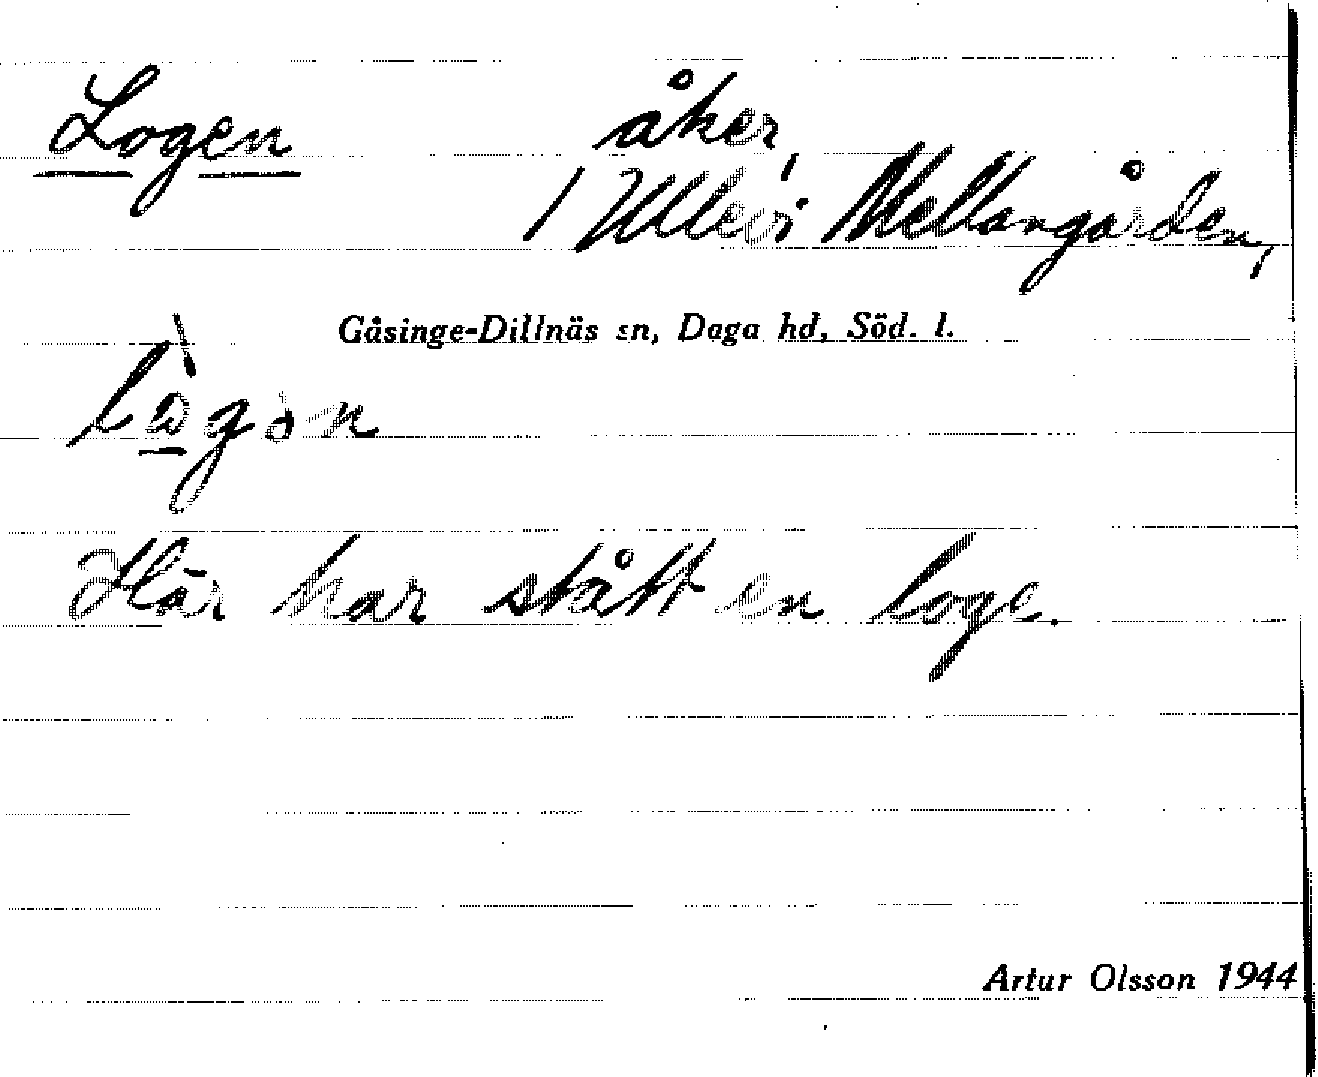 Logen åker,
/ Ullevi Mellangården,
Gåsinge-Dillnäs sn, Daga hd, Söd. l.
Här har stått en loge.
Artur Olsson 1944